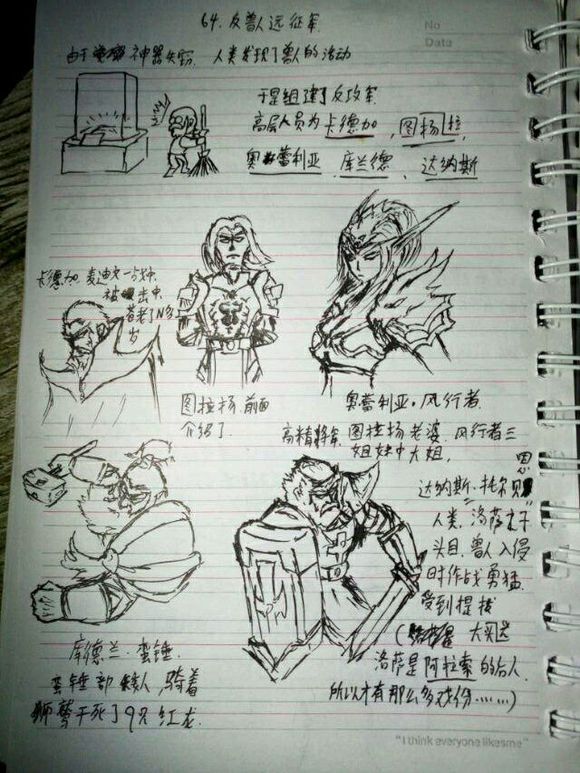 64. 反兽人远征军
No
Date
由于 神器失窃, 人类发现了兽人的活动
于是组建了反攻军
高层人员为卡德加, 图扬拉,
奥蕾利亚. 库兰德, 达纳斯
卡德加. 麦迪文一战中
被 出来
苍老了N多
岁
图拉扬. 前面
介绍了
奥蕾利亚·风行者
高精将军. 图拉扬老婆. 风行者三
姐妹中大姐,
达纳斯·托尔贝恩
人类. 洛萨手下
头目. 兽人入侵
时作战勇猛.
受到提拔
洛萨是阿拉索的后人
所以才有那么多戏份......)
库德兰·蛮锤
蛮锤部 矮人. 骑着
狮鹫干死了9只红龙.
"I think everyone likes me"